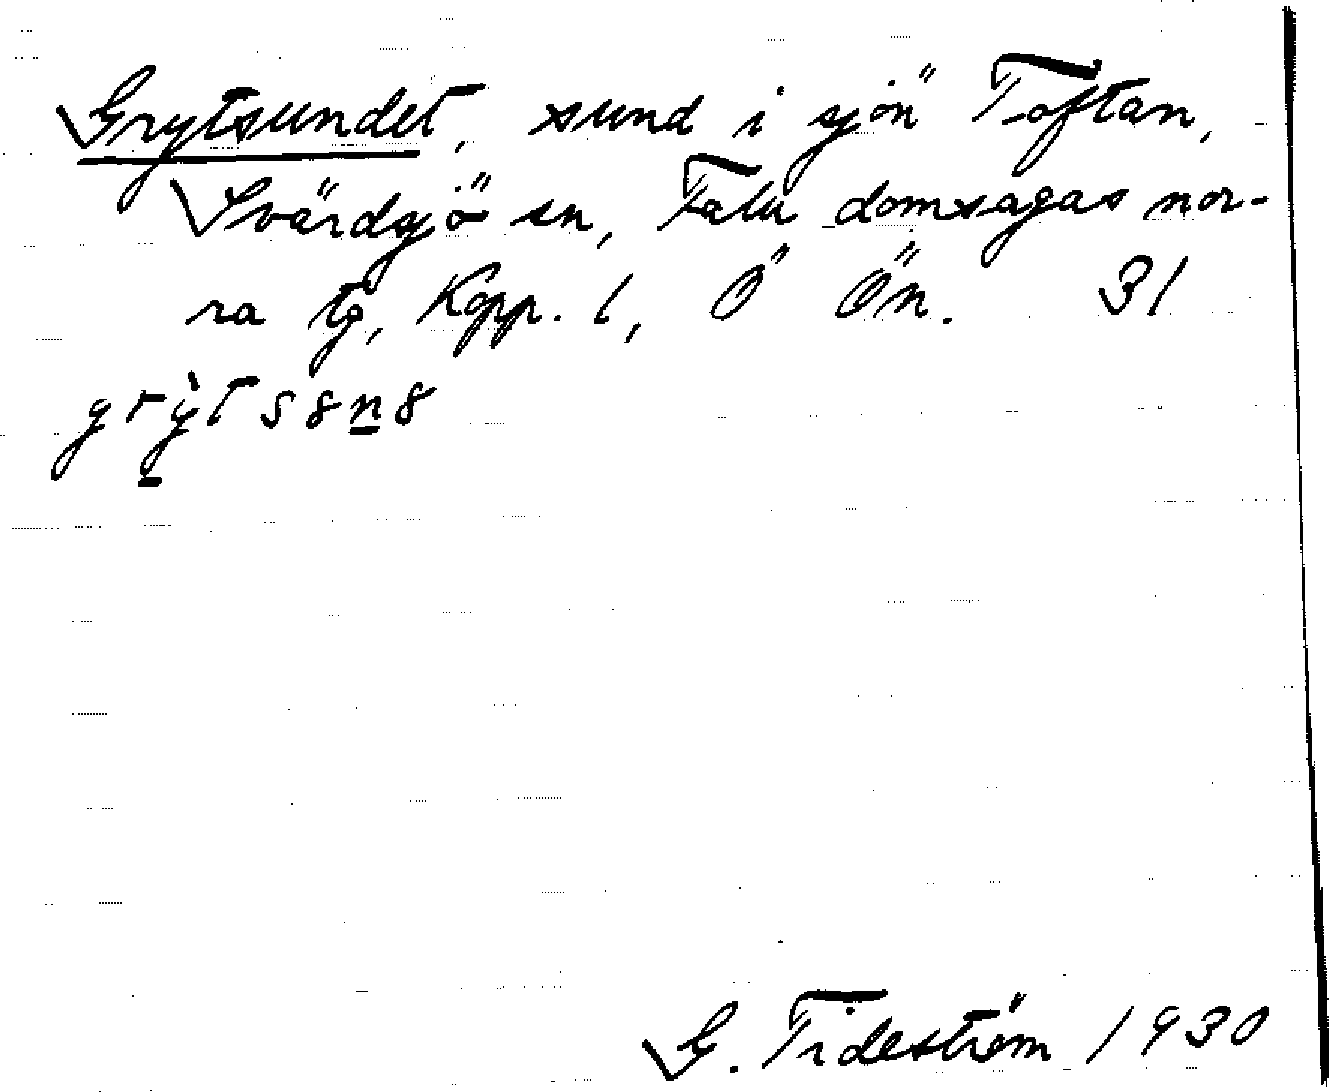 Grytsundet, sund i sjön Toftan,
Svärdsjö sn, Falu domsagas nor-
ra tg, Kopp. l, Ö Ön. 31
grỳtsan̲a
G. Tideström 1930